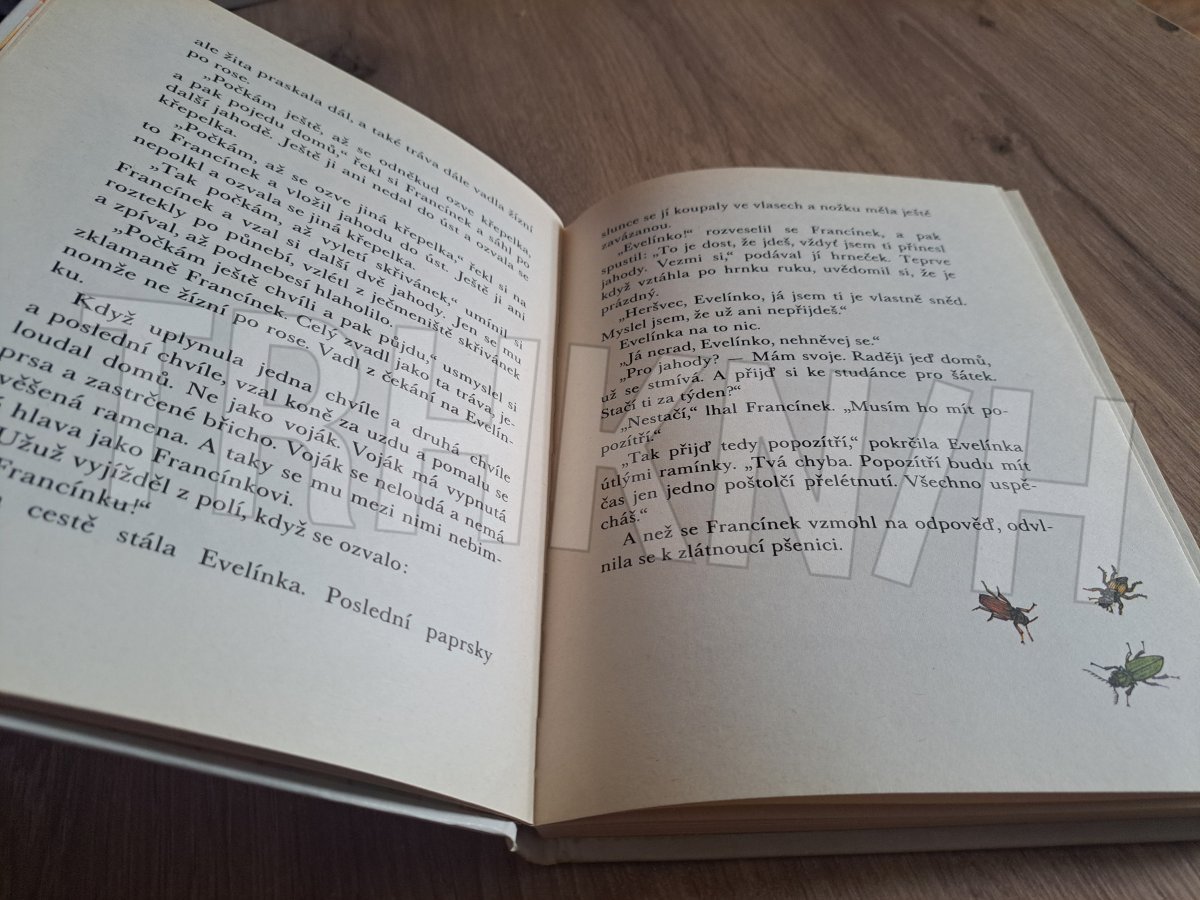 ale žita praskala dál, a také tráva dále vadla žízní
po rose.
„Počkám ještě, až se odněkud ozve křepelka,
a pak pojedu domů,“ řekl si Francínek a sáhl po
další jahodě. Ještě ji ani nedal do úst a ozvala se
křepelka.
„Počkám, až se ozve jiná křepelka,“ řekl si na
to Francínek a vložil jahodu do úst. Ještě ji ani
nepolkl a ozvala se jiná křepelka.
„Tak počkám, až vyletí skřivánek,“ umínil si
Francínek a vzal si další dvě jahody. Jen se mu
roztekly po půnebí, vzlétl z ječmeniště skřivánek
a zpíval, až podnebesí hlaholilo.
„Počkám ještě chvíli a pak půjdu,“ usmyslel si
zklamaně Francínek. Celý zvadl jako ta tráva, je-
nomže ne žízní po rose. Vadl z čekání na Evelín-
ku.
Když uplynula jedna chvíle a druhá chvíle
a poslední chvíle, vzal koně za uzdu a pomalu se
loudal domů. Ne jako voják. Voják má vypnutá
prsa a zastrčené břicho. Voják se neloudá a nemá
věšená ramena. A taky se mu mezi nimi nebim-
hlava jako Francínkovi.
Užuž vyjížděl z polí, když se ozvalo:
Francínku!“
cestě stála Evelínka. Poslední paprsky
slunce se jí koupaly ve vlasech a nožku měla ještě
zavázanou.
„Evelínko!“ rozveselil se Francínek, a pak
spustil: „To je dost, že jdeš, vždyť jsem ti přinesl
jahody. Vezmi si,“ podával jí hrneček. Teprve
když vztáhla po hrnku ruku, uvědomil si, že je
prázdný.
„Heršvec, Evelínko, já jsem ti je vlastně sněd.
Myslel jsem, že už ani nepřijdeš.“
Evelínka na to nic.
„Já nerad, Evelínko, nehněvej se.“
„Pro jahody? — Mám svoje. Raději jeď domů,
už se stmívá. A přijď si ke studánce pro šátek.
Stačí ti za týden?“
„Nestačí,“ lhal Francínek. „Musím ho mít po-
pozítří.“
„Tak přijď tedy popozítří,“ pokrčila Evelínka
útlými ramínky. „Tvá chyba. Popozítří budu mít
čas jen jedno poštolčí přelétnutí. Všechno uspě-
cháš.“
A než se Francínek vzmohl na odpověď, odvl-
nila se k zlátnoucí pšenici.
TRHKNIH